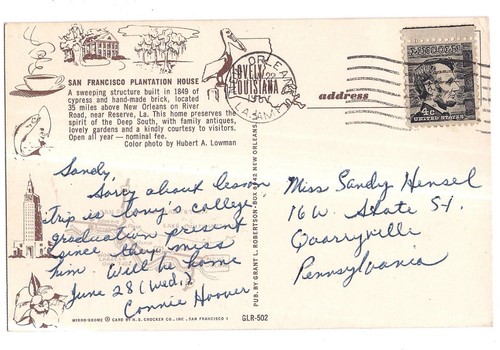 SAN FRANCISCO PLANTATION HOUSE
A sweeping structure built in 1849 of
cypress and hand-made brick, located
35 miles above New Orleans on River
Road, near Reserve, La. This home preserves the
spirit of the Deep South, with family antiques,
lovely gardens and a kindly courtesy to visitors.
Open all year — nominal fee.
Color photo by Hubert A. Lowman
Sandy,
Sorry about lesson
Trip is Tony's college
graduation present
since they miss
him. Will be home
June 28 (Wed.)
Connie Hoover
MIRRO-KROME © CARD BY H. S. CROCKER CO., INC., SAN FRANCISCO 1
GLR-502
PUB. BY GRANT L. ROBERTSON - BOX 8142 NEW ORLEANS
LOVELY
LOUISIANA
address
4c
UNITED STATES
Miss Sandy Hensel
16 W. State St.
Quarryville
Pennsylvania